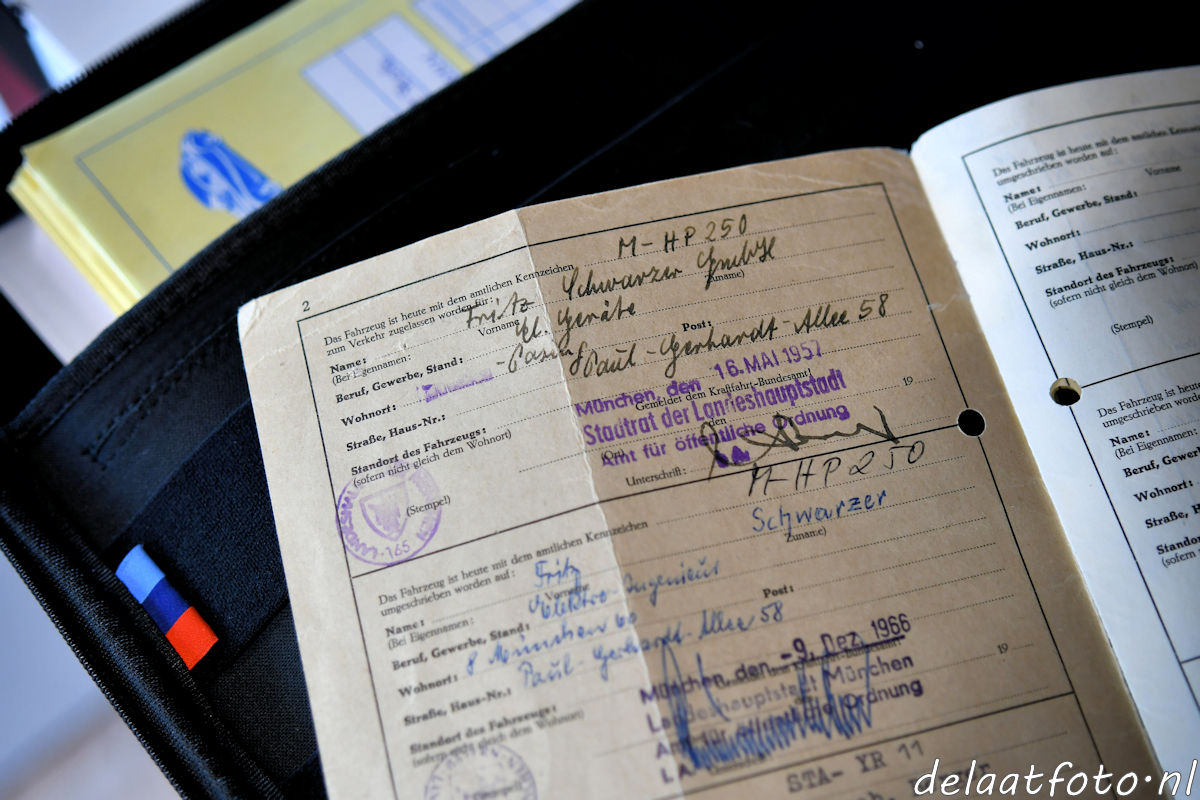 2
Das Fahrzeug ist heute mit dem amtlichen Kennzeichen M-HP 250
zum Verkehr zugelassen worden für:
Name: Fritz Schwarzer GmbH
(Bei Eigennamen: Vorname Zuname)
Beruf, Gewerbe, Stand: El. Geräte
Wohnort: Post:
Straße, Haus-Nr.: Paul-Gerhardt-Allee 58
Standort des Fahrzeugs:
(sofern nicht gleich dem Wohnort)
München, den 16. MAI 1957
Gemeldet dem Kraftfahrt-Bundesamt
Stadtrat der Landeshauptstadt
den 19
Amt für öffentliche Ordnung
(Ort)
Unterschrift:
(Stempel)
165
Das Fahrzeug ist heute mit dem amtlichen Kennzeichen M-HP 250
umgeschrieben worden auf:
Name: Fritz Schwarzer
(Bei Eigennamen: Vorname Zuname)
Beruf, Gewerbe, Stand: Elektro Ingenieur
Wohnort: 8 München 60 Post:
Straße, Haus-Nr.: Paul-Gerhardt-Allee 58
Standort des Fahrzeugs:
(sofern nicht gleich dem Wohnort)
München, den -9. Dez. 1966
19
Landeshauptstadt München
Amt für öffentliche Ordnung
STA- YR 11
Das Fahrzeug ist heute mit dem amtlichen Kennzeichen
umgeschrieben worden auf:
Name:
(Bei Eigennamen: Vorname
Beruf, Gewerbe, Stand:
Wohnort:
Straße, Haus-Nr.:
Standort des Fahrzeugs:
(sofern nicht gleich dem Wohnort)
(Stempel)
Das Fahrzeug ist heute mit dem
umgeschrieben worden auf:
Name:
(Bei Eigennamen:
Beruf, Gewerbe,
Wohnort:
Straße, Ha
Standort
(sofern nich
delaatfoto.nl